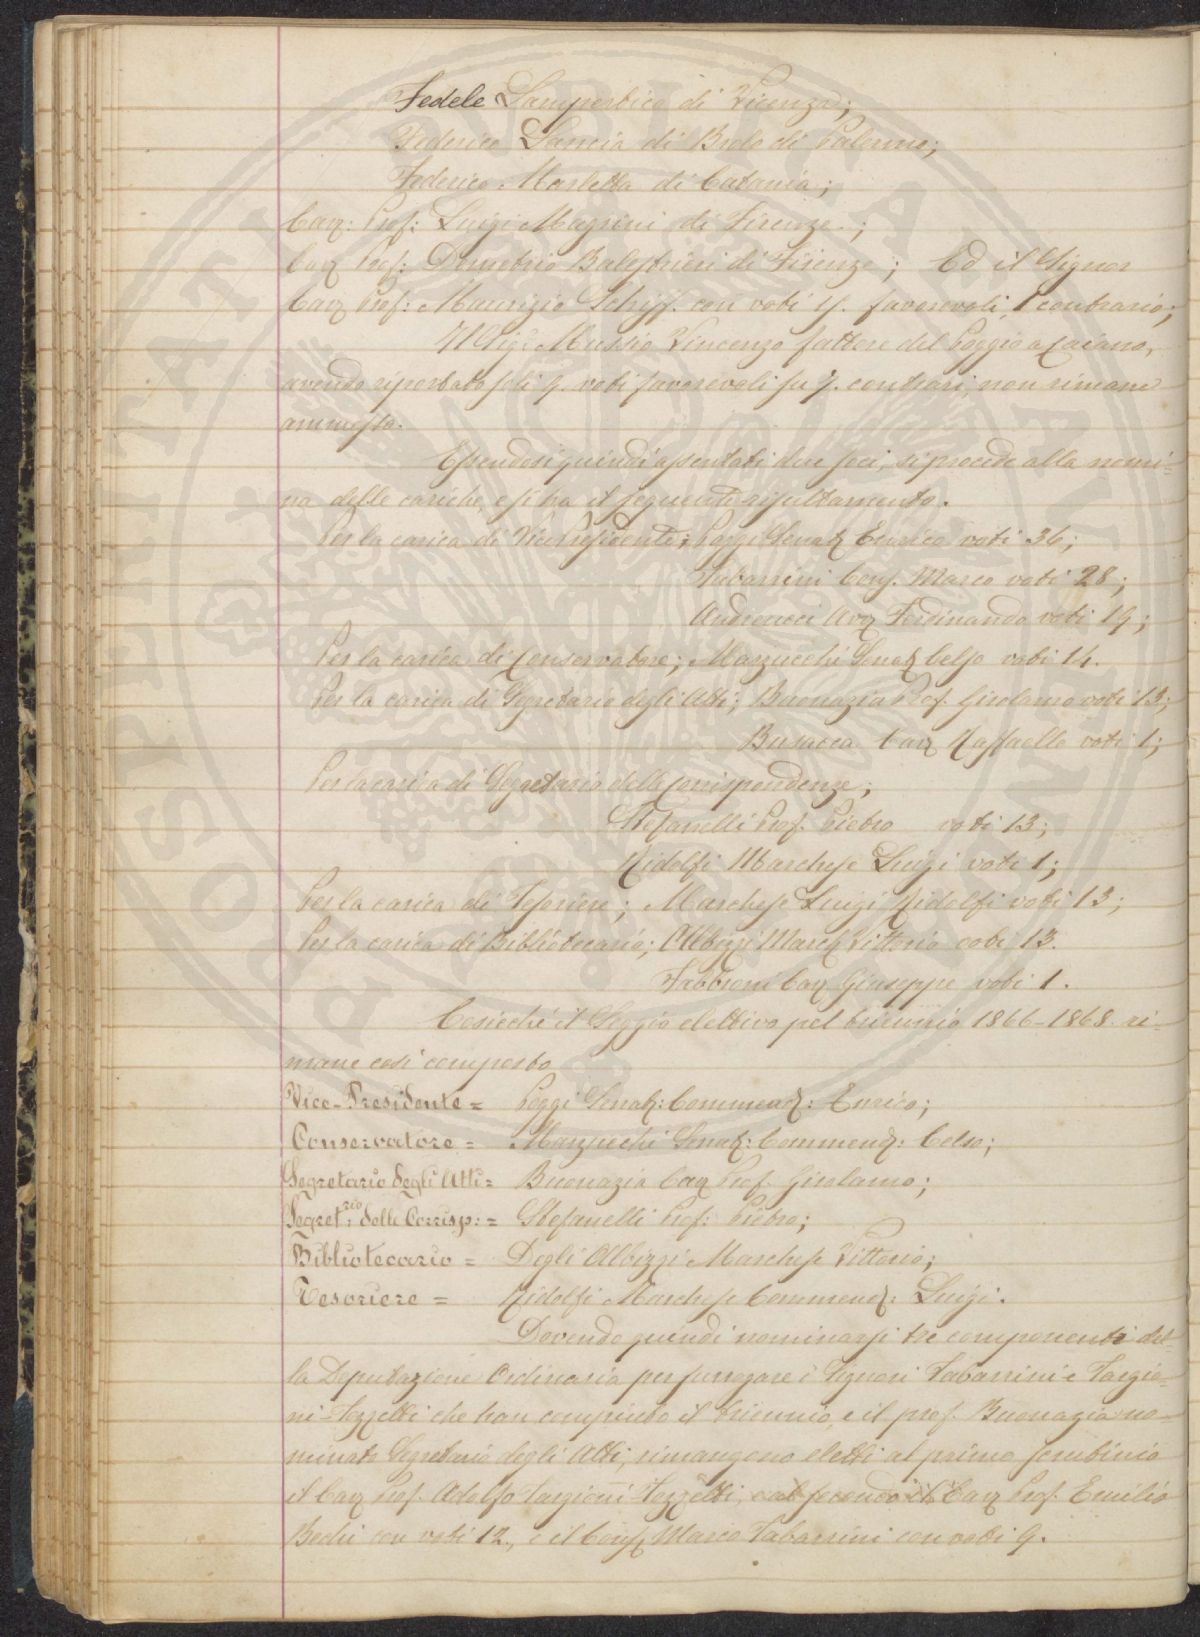 Fedele Lampertico di Vicenza;
Federico Lancia di Brolo di Palermo;
Federico Marletta di Catania;
Cav: Prof: Luigi Magrini di Firenze;
Cav Prof: Demetrio Balestrieri di Firenze; Ed il Signor
Cav Prof: Maurizio Schiff con voti 15. favorevoli, 1 contrario;
Il Sig: Mussio Vincenzo fattore del Poggio a Caiano,
avendo riportato soli 9. voti favorevoli su 7. contrari, non rimane
ammesso.
Essendosi quindi assentati due soci, si procede alla nomi-
na delle cariche, e si ha il seguente risultamento.
Per la carica di Vice Presidente; Poggi Senat Enrico voti 36;
Tabarrini Cons. Marco voti 28;
Andreucci Avv Ferdinando voti 19;
Per la carica di Conservatore; Marzucchi Senat Celso voti 14.
Per la carica di Segretario degli Atti; Buonazia Prof. Girolamo voti 13;
Busacca Cav Raffaello voti 1;
Per la carica di Segretario delle Corrispondenze;
Stefanelli Prof. Pietro voti 13;
Ridolfi Marchese Luigi voti 1;
Per la carica di Tesoriere; Marchese Luigi Ridolfi voti 13;
Per la carica di Bibliotecario; Albizzi March Vittorio voti 13.
Fabbroni Cav Giuseppe voti 1.
Cosicchè il Seggio elettivo pel triennio 1866-1868. ri-
mane così composto
Vice-Presidente = Poggi Senat: Commend: Enrico;
Conservatore = Marzucchi Senat: Commend: Celso;
Segretario degli Atti = Buonazia Cav Prof. Girolamo;
Segret.rio: delle Corrisp: = Stefanelli Prof: Pietro;
Bibliotecario = Degli Albizzi Marchese Vittorio;
Tesoriere = Ridolfi Marchese Commend: Luigi.
Dovendo quindi nominarsi tre componenti del-
la Deputazione Ordinaria per surrogare i Signori Tabarrini e Targio-
ni-Tozzetti che han compiuto il triennio, e il prof. Buonazia no-
minato Segretario degli Atti, rimangono eletti al primo scrutinio
il Cav Prof. Adolfo Targioni Tozzetti, ed al secondo il Cav Prof. Emilio
Bechi con voti 12., e il Cons. Marco Tabarrini con voti 9.